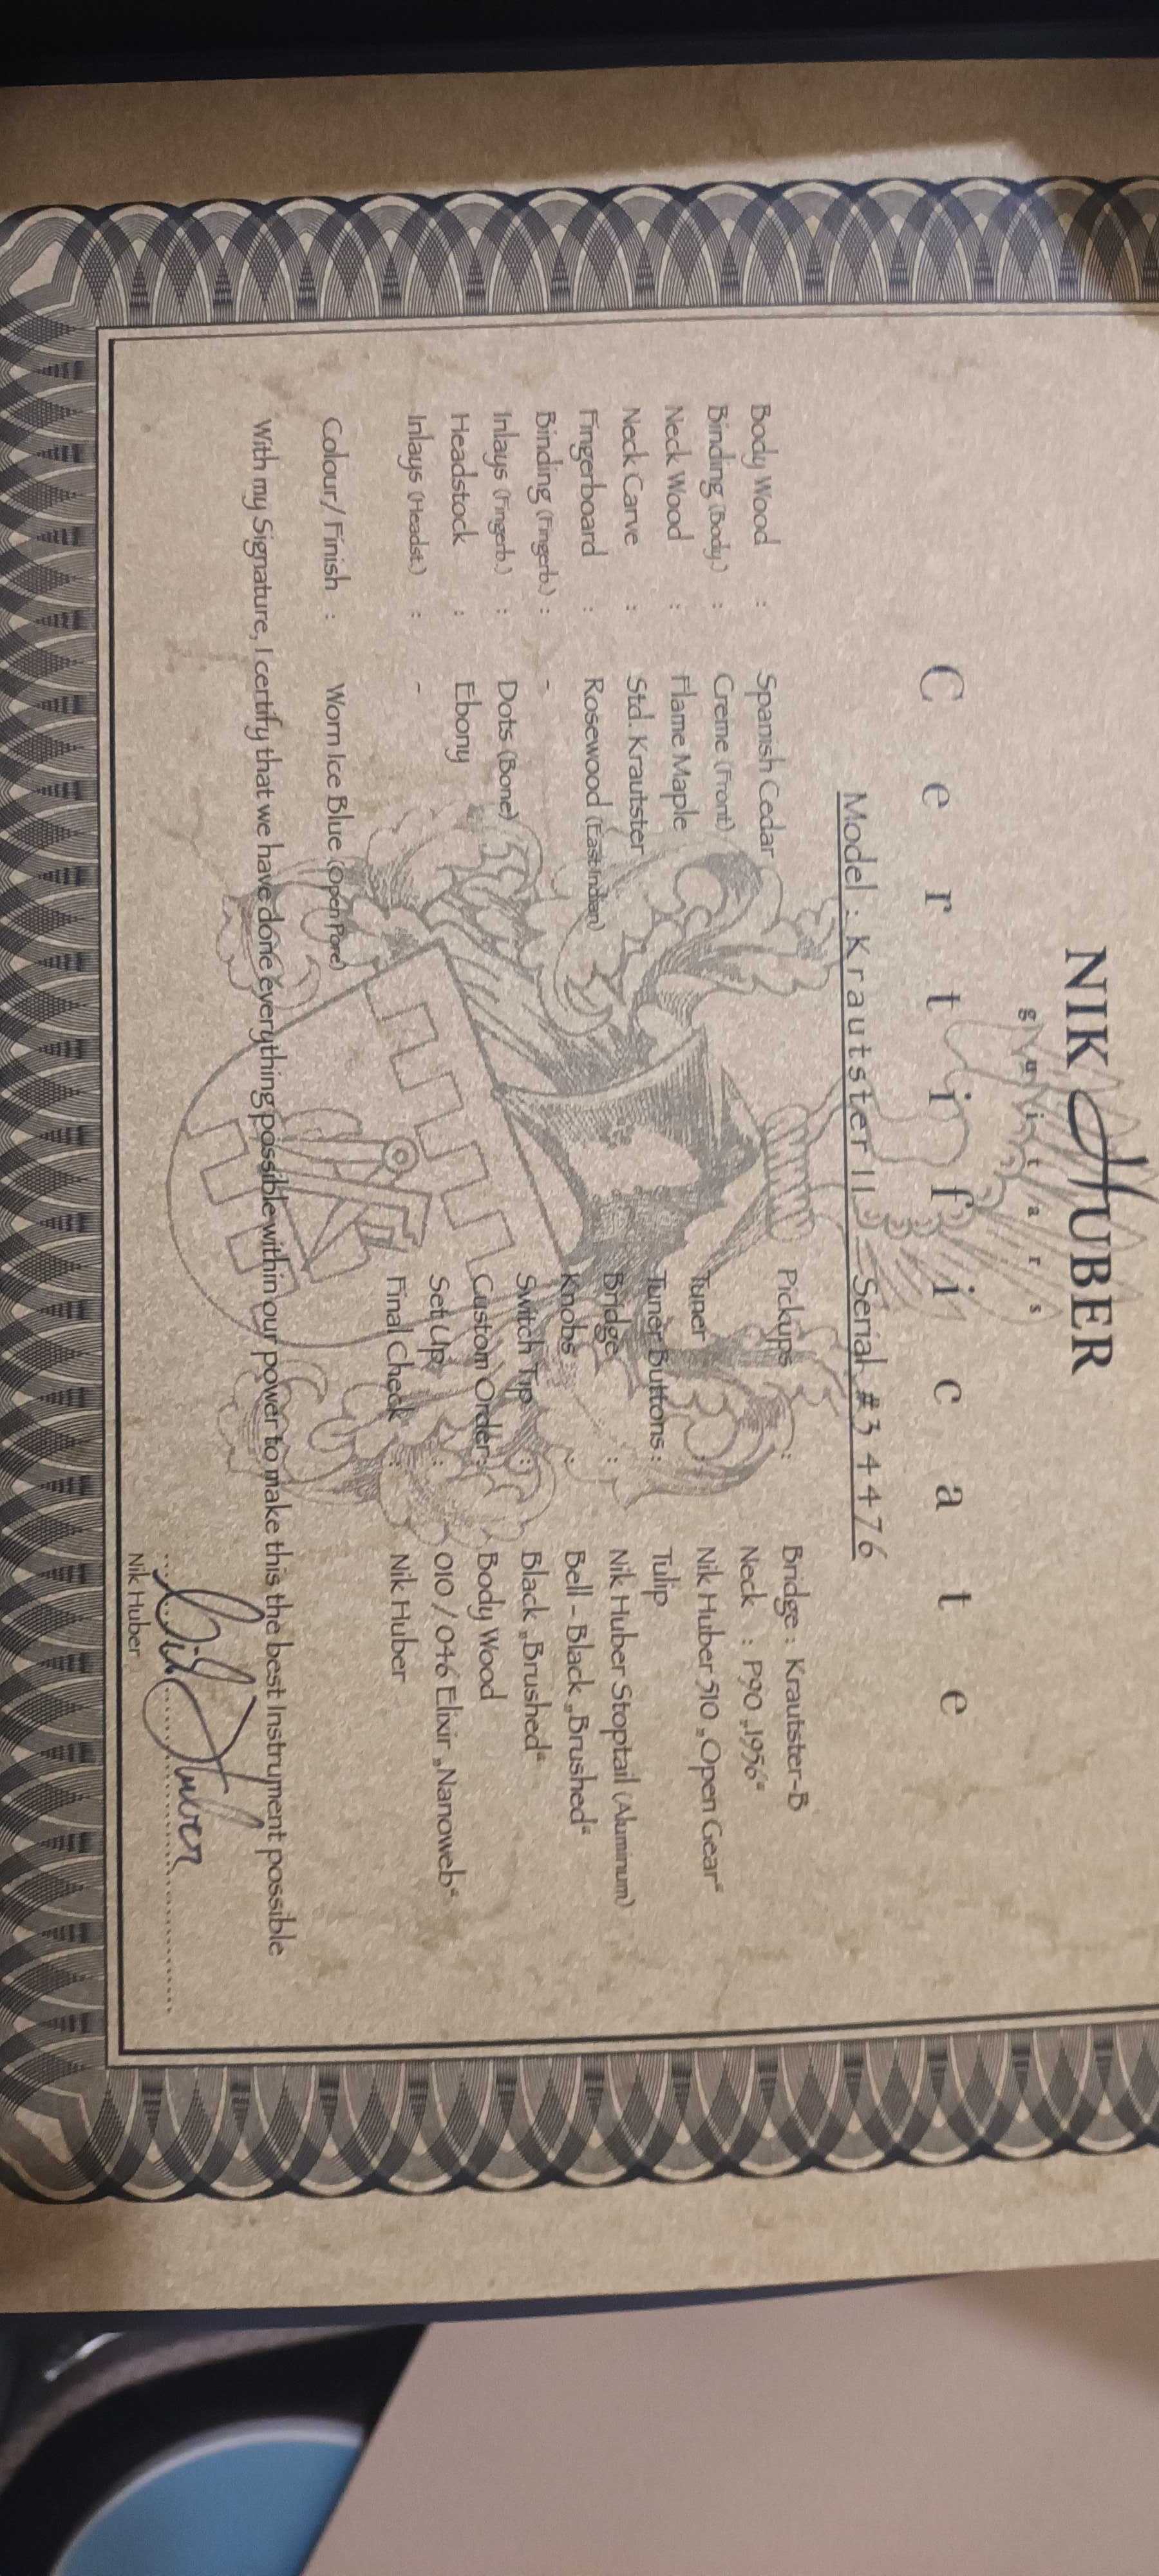 NIK HUBER
guitars
Certificate
Model : Krautster II Serial #3 4476
Body Wood : Spanish Cedar
Binding (Body.) : Creme (Front)
Neck Wood : Flame Maple
Neck Carve : Std. Krautster
Fingerboard : Rosewood (East Indian)
Binding (Fingerb.) : -
Inlays (Fingerb.) : Dots (Bone)
Headstock : Ebony
Inlays (Headst.) : -
Colour/ Finish : Worn Ice Blue (Open Pore)
Pickups : Bridge : Krautster-B
Neck : P90 „1956“
Tuner Nik Huber 510 „Open Gear“
Tuner Buttons : Tulip
Bridge : Nik Huber Stoptail (Aluminum)
Knobs : Bell - Black „Brushed“
Switch Tip : Black „Brushed“
Custom Order : Body Wood
Set Up : 010 / 046 Elixir „Nanoweb“
Final Check : Nik Huber
With my Signature, I certify that we have done everything possible within our power to make this the best Instrument possible
Nik Huber
Nik Huber